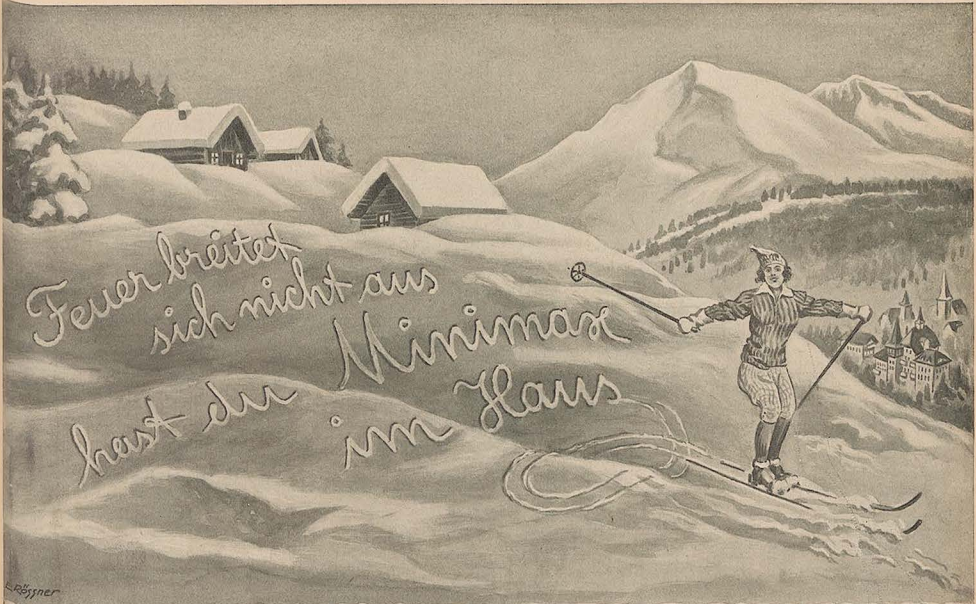 Feuer breitet
sich nicht aus
hast du Minimax
im Haus
Rössner